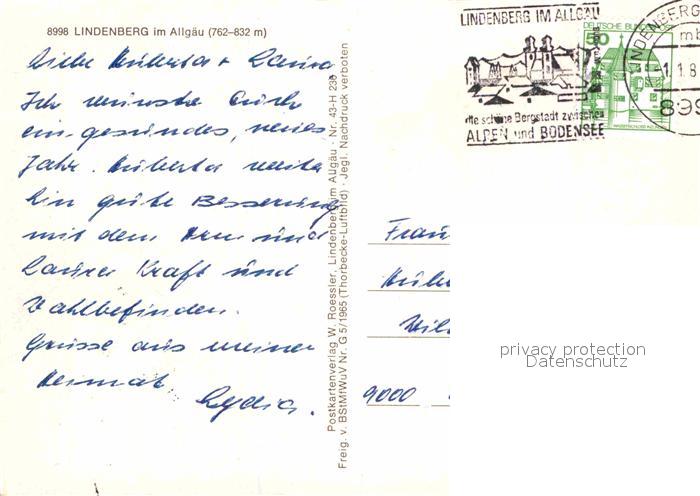 8998 LINDENBERG im Allgäu (762–832 m)
Liebe Huberta + Laura
Ich wünsche Euch
ein gesundes, neues
Jahr. Huberta weiter
hin gute Besserung
mit dem Arm und
Laura Kraft und
Wohlbefinden.
Grüsse aus meiner
Heimat
Lydia.
Postkartenverlag W. Roessler, Lindenberg im Allgäu · Nr. 43-H 236
Freig. v. BStMfWuV Nr. G 5/1965 (Thorbecke-Luftbild) · Jegl. Nachdruck verboten
LINDENBERG IM ALLGÄU
die schöne Bergstadt zwischen
ALPEN und BODENSEE
DEUTSCHE BUNDESPOST
50
LINDENBERG
mb
1.1.8
899
Frau
Hube
9000
privacy protection
Datenschutz